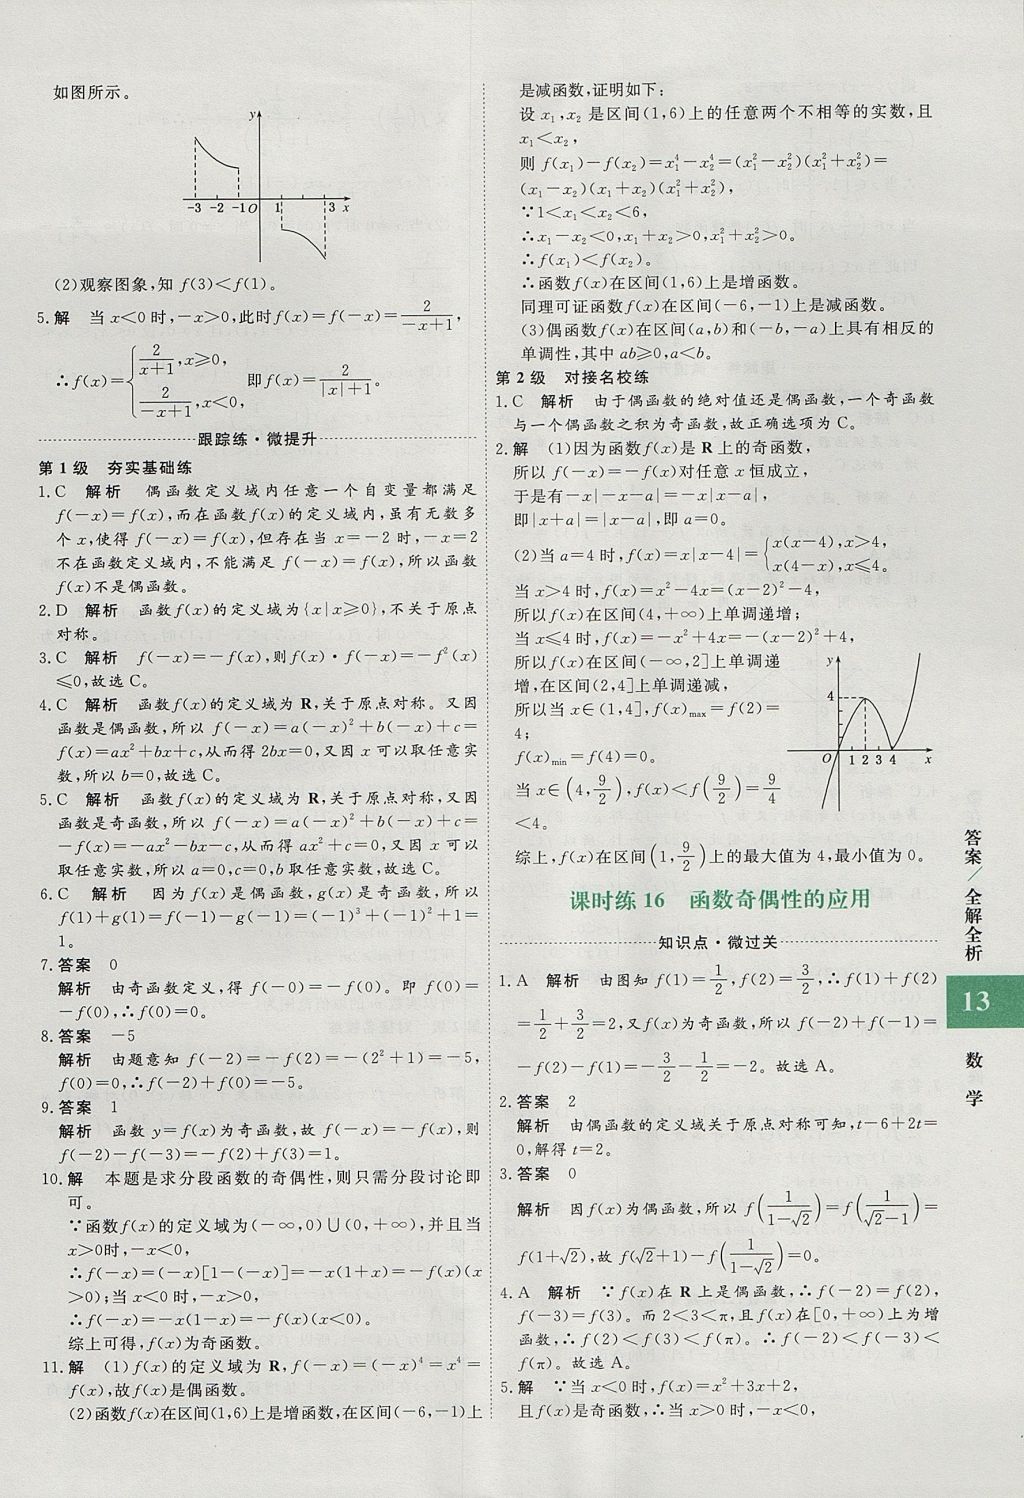 如图所示。
y
-3 -2 -1 O 1 3 x
(2)观察图象,知 f(3)<f(1)。
5.解 当 x<0时,-x>0,此时f(x)=f(-x)=2/(-x+1),
∴f(x)={2/(x+1),x≥0, 2/(-x+1),x<0, 即f(x)=2/(|x|+1)。
跟踪练·微提升
第1级 夯实基础练
1.C 解析 偶函数定义域内任意一个自变量都满足
f(-x)=f(x),而在函数f(x)的定义域内,虽有无数多
个x,使得 f(-x)=f(x),但存在当 x=-2 时,-x=2
不在函数定义域内,不能满足 f(-x)=f(x),所以函数
f(x)不是偶函数。
2.D 解析 函数f(x)的定义域为{x|x≥0},不关于原点
对称。
3.C 解析 f(-x)=-f(x),则f(x)·f(-x)=-f²(x)
≤0,故选C。
4.C 解析 函数f(x)的定义域为 R,关于原点对称。又因
函数是偶函数,所以 f(-x)=a(-x)²+b(-x)+c=
f(x)=ax²+bx+c,从而得 2bx=0,又因 x 可以取任意实
数,所以b=0,故选C。
5.C 解析 函数f(x)的定义域为 R,关于原点对称,又因
函数是奇函数,所以 f(-x)=a(-x)²+b(-x)+c=
-f(x)=-ax²-bx-c,从而得 ax²+c=0,又因 x 可以
取任意实数,所以a=0,c=0,b取任意实数,故选C。
6.C 解析 因为 f(x)是偶函数,g(x)是奇函数,所以
f(1)+g(1)=f(-1)-g(-1)=(-1)³+(-1)²+1=
1。
7.答案 0
解析 由奇函数定义,得 f(-0)=-f(0)。即 f(0)=
-f(0),∴f(0)=0。
8.答案 -5
解析 由题意知 f(-2)=-f(2)=-(2²+1)=-5,
f(0)=0,∴f(-2)+f(0)=-5。
9.答案 1
解析 函数 y=f(x)为奇函数,故 f(-x)=-f(x),则
f(-2)-f(-3)=-f(2)+f(3)=1。
10.解 本题是求分段函数的奇偶性,则只需分段讨论即
可。
∵函数f(x)的定义域为(-∞,0)∪(0,+∞),并且当
x>0时,-x<0,
∴f(-x)=(-x)[1-(-x)]=-x(1+x)=-f(x)(x
>0);当x<0时,-x>0,
∴f(-x)=-x(1-x)=-f(x)(x<0)。
综上可得,f(x)为奇函数。
11.解 (1)f(x)的定义域为 R,f(-x)=(-x)⁴=x⁴=
f(x),故f(x)是偶函数。
(2)函数f(x)在区间(1,6)上是增函数,在区间(-6,-1)上
是减函数,证明如下:
设 x₁,x₂ 是区间(1,6)上的任意两个不相等的实数,且
x₁<x₂,
则 f(x₁)-f(x₂)=x₁⁴-x₂⁴=(x₁²-x₂²)(x₁²+x₂²)=
(x₁-x₂)(x₁+x₂)(x₁²+x₂²),
∵1<x₁<x₂<6,
∴x₁-x₂<0,x₁+x₂>0,x₁²+x₂²>0。
∴f(x₁)<f(x₂)。
∴函数f(x)在区间(1,6)上是增函数。
同理可证函数f(x)在区间(-6,-1)上是减函数。
(3)偶函数f(x)在区间(a,b)和(-b,-a)上具有相反的
单调性,其中 ab≥0,a<b。
第2级 对接名校练
1.C 解析 由于偶函数的绝对值还是偶函数,一个奇函数
与一个偶函数之积为奇函数,故正确选项为C。
2.解 (1)因为函数f(x)是 R 上的奇函数,
所以 f(-x)=-f(x)对任意 x 恒成立,
于是有-x|-x-a|=-x|x-a|,
即|x+a|=|x-a|,即a=0。
(2)当 a=4 时,f(x)=x|x-4|={x(x-4),x>4, x(4-x),x≤4。
当 x>4 时,f(x)=x²-4x=(x-2)²-4,
所以f(x)在区间(4,+∞)上单调递增;
当x≤4时,f(x)=-x²+4x=-(x-2)²+4,
所以f(x)在区间(-∞,2]上单调递
增,在区间(2,4]上单调递减,
所以当 x∈(1,4],f(x)max=f(2)=
4;
f(x)min=f(4)=0。
y
4
O 1 2 3 4 x
当 x∈(4,9/2),f(x)<f(9/2)=9/4
<4。
综上,f(x)在区间(1,9/2)上的最大值为4,最小值为0。
课时练16 函数奇偶性的应用
知识点·微过关
1.A 解析 由图知 f(1)=1/2,f(2)=3/2,∴f(1)+f(2)
=1/2+3/2=2,又f(x)为奇函数,所以 f(-2)+f(-1)=
-f(2)-f(1)=-3/2-1/2=-2。故选A。
2.答案 2
解析 由偶函数的定义域关于原点对称可知,t-6+2t=
0,解得t=2。
3.答案 0
解析 因f(x)为偶函数,所以 f(1/(1-√2))=f(1/(√2-1))=
f(1+√2),故 f(√2+1)-f(1/(1-√2))=0。
4.A 解析 ∵f(x)在 R 上是偶函数,∴f(-2)=f(2),
f(-3)=f(3)。而 2<3<π,且f(x)在[0,+∞)上为增
函数,∴f(2)<f(3)<f(π)。∴f(-2)<f(-3)<
f(π)。故选A。
5.解 ∵当 x<0时,f(x)=x²+3x+2,
且 f(x)是奇函数,∴当 x>0时,-x<0,
答案/全解全析
13
数学